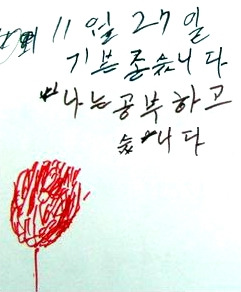 11일 27일
기분좋습니다
나는공부하고
습니다